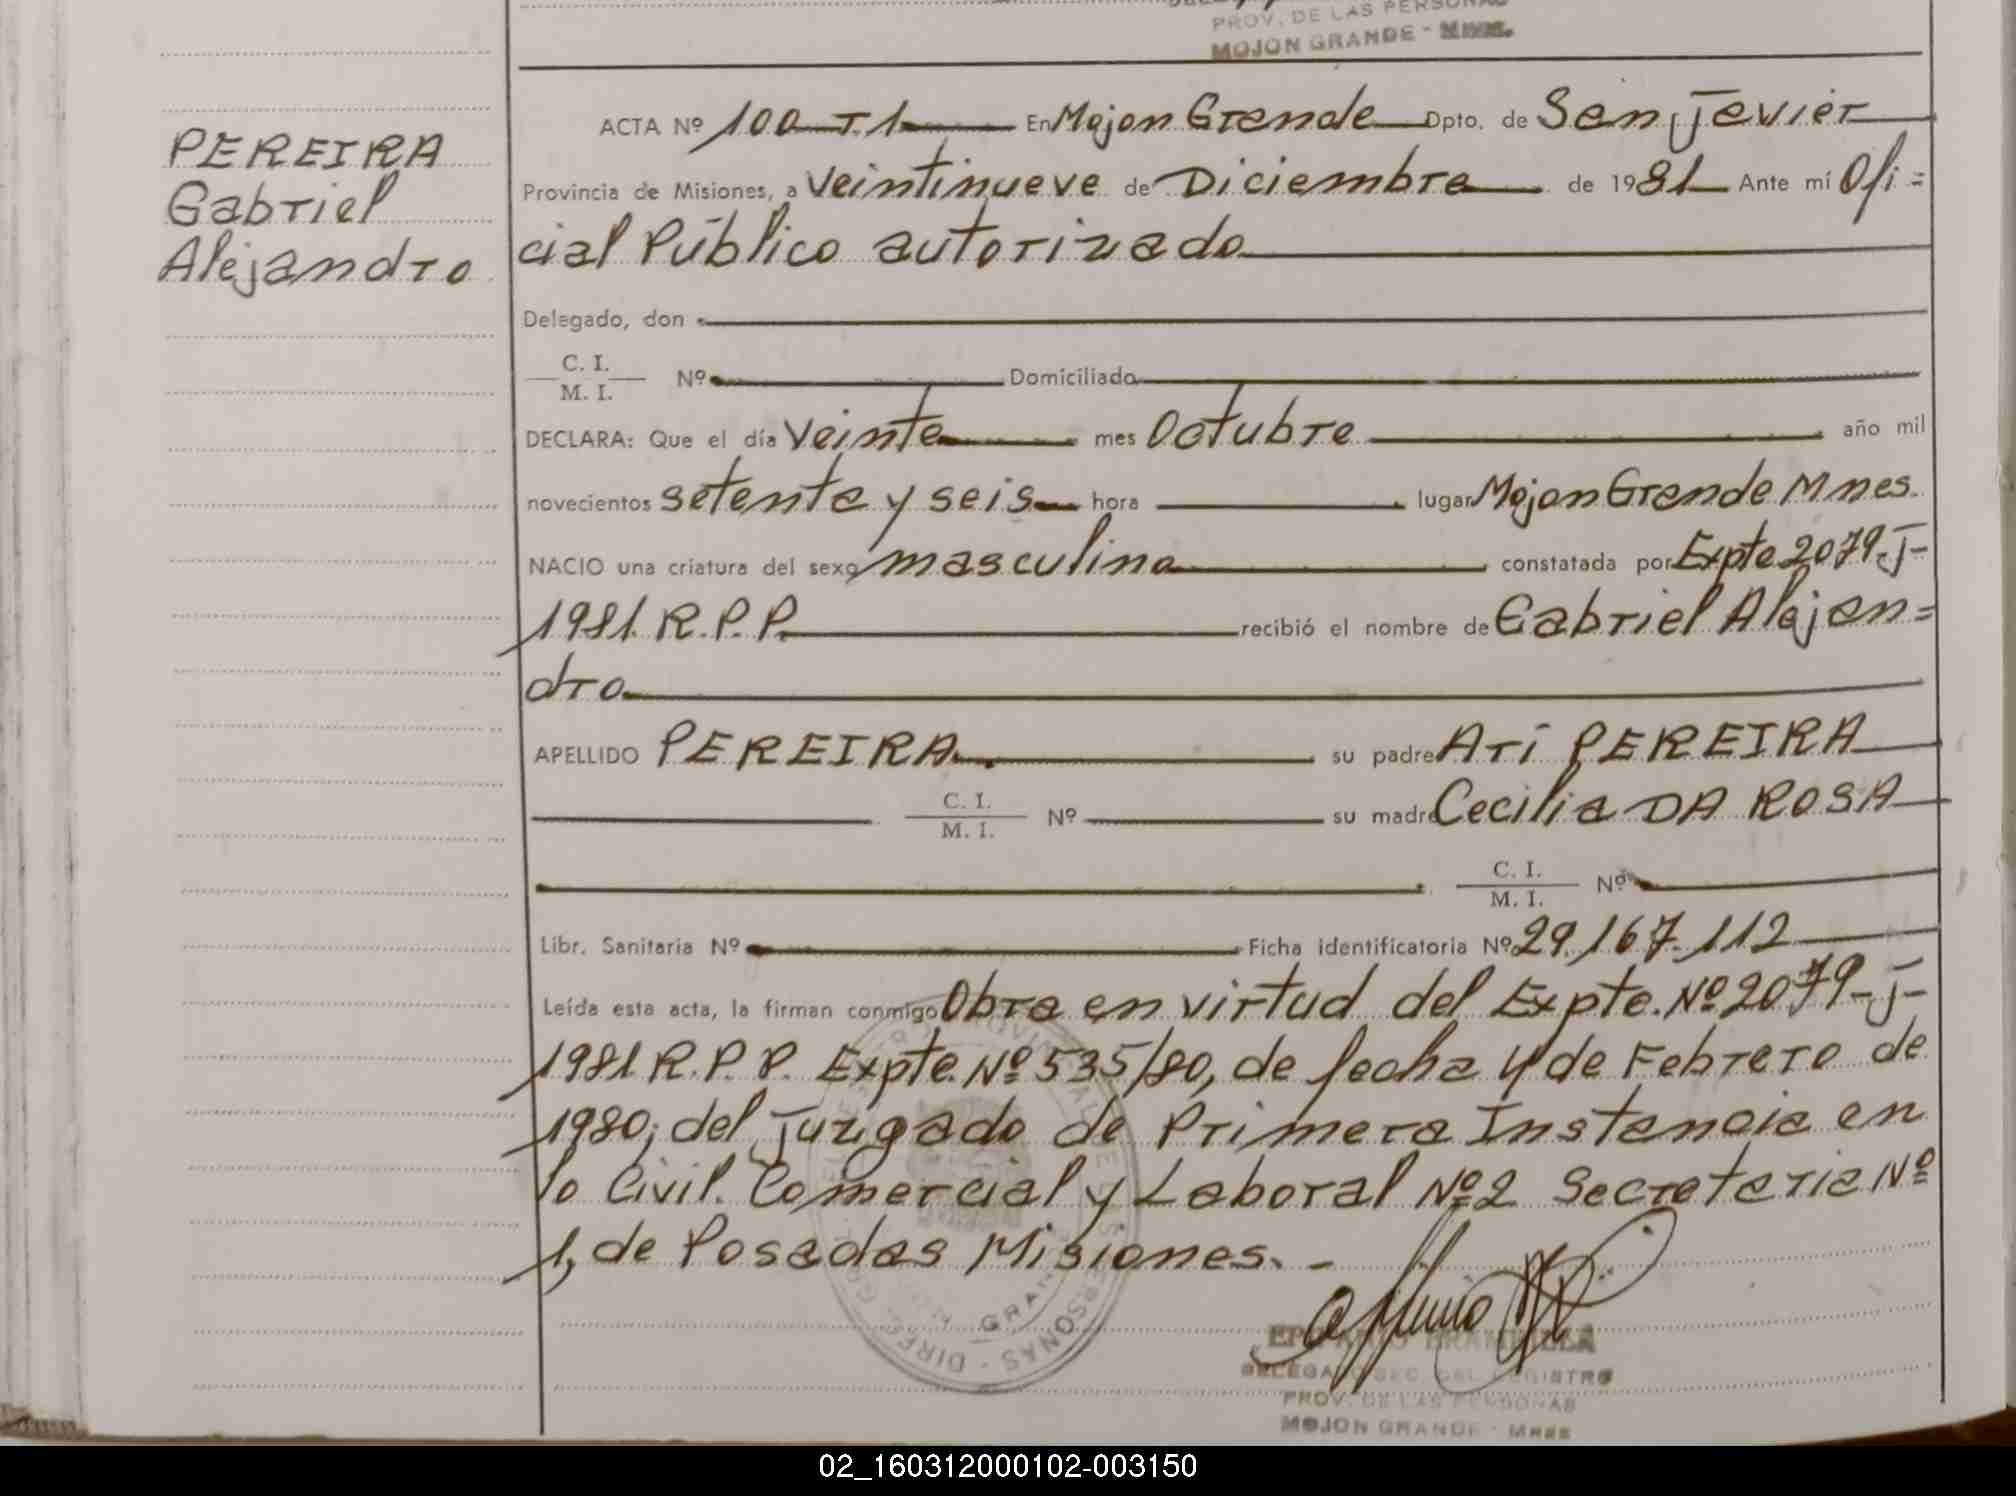 PROV. DE LAS PERSONAS
MOJON GRANDE - Mnes.
PEREIRA
Gabriel
Alejandro
ACTA Nº 100 T. 1 En Mojon Grande Dpto. de San Javier
Provincia de Misiones, a Veintinueve de Diciembre de 1981 Ante mí Ofi=
cial Público autorizado
Delegado, don
C. I.
M. I. Nº Domiciliado
DECLARA: Que el día Veinte mes Octubre año mil
novecientos setenta y seis hora lugar Mojon Grande Mnes.
NACIO una criatura del sexo masculino constatada por Expte 2079-J-
1981. R.P.P. recibió el nombre de Gabriel Alejan=
dro
APELLIDO PEREIRA su padre Ari PEREIRA
C. I.
M. I. Nº su madre Cecilia DA ROSA
C. I.
M. I. Nº
Libr. Sanitaria Nº Ficha identificatoria Nº 29.167.112
Leída esta acta, la firman conmigo Obra en virtud del Expte. Nº 2079-J-
1981 R.P.P. Expte. Nº 535/80, de fecha 4 de Febrero de
1980; del Juzgado de Primera Instancia en
lo Civil. Comercial y Laboral Nº 2 Secretaria Nº
1, de Posadas Misiones. -
DELEGADO SEC. DEL REGISTRO
PROV. DE LAS PERSONAS
MOJON GRANDE - Mnes
02_160312000102-003150